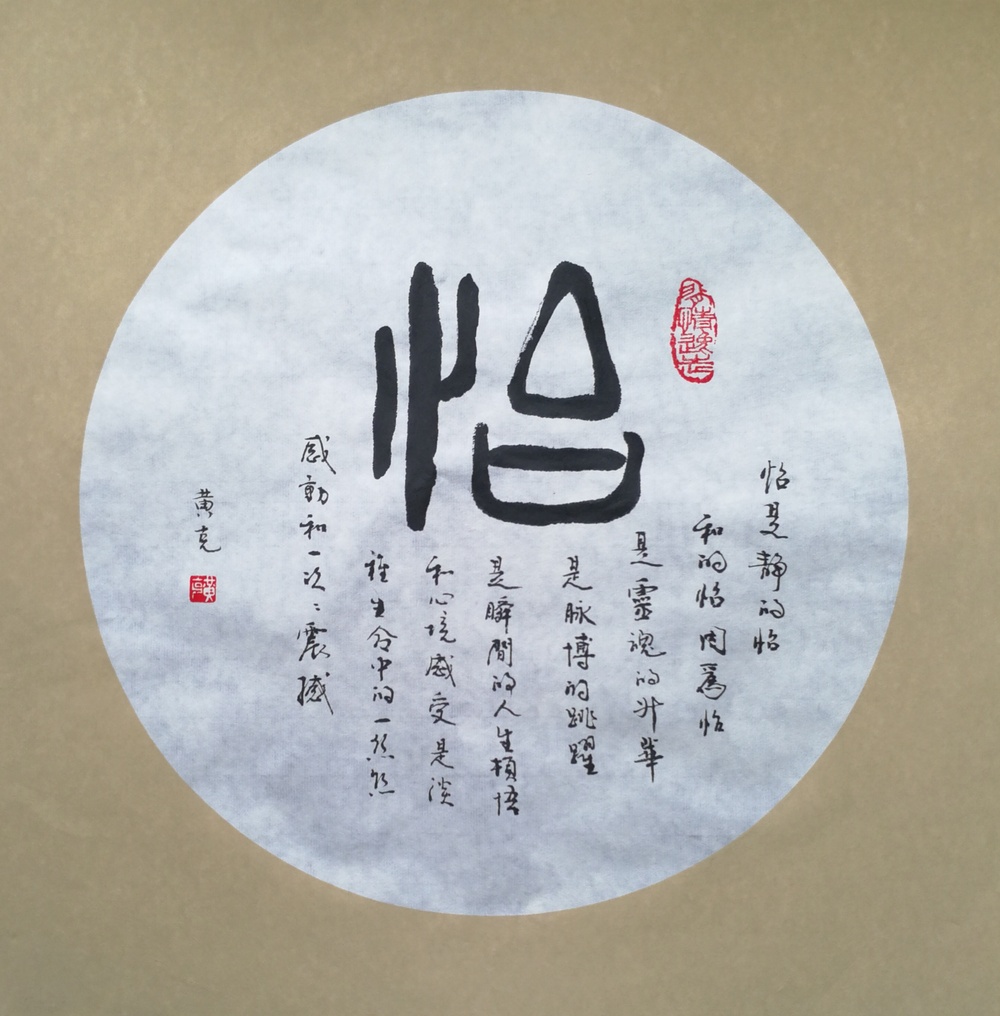 怡
怡是静的怡
和的怡因為怡
是靈魂的升華
是脉博的跳躍
是瞬間的人生頓悟
和心境感受是淡
雅生命中的一丝丝
感動和一次〻震撼
黄克